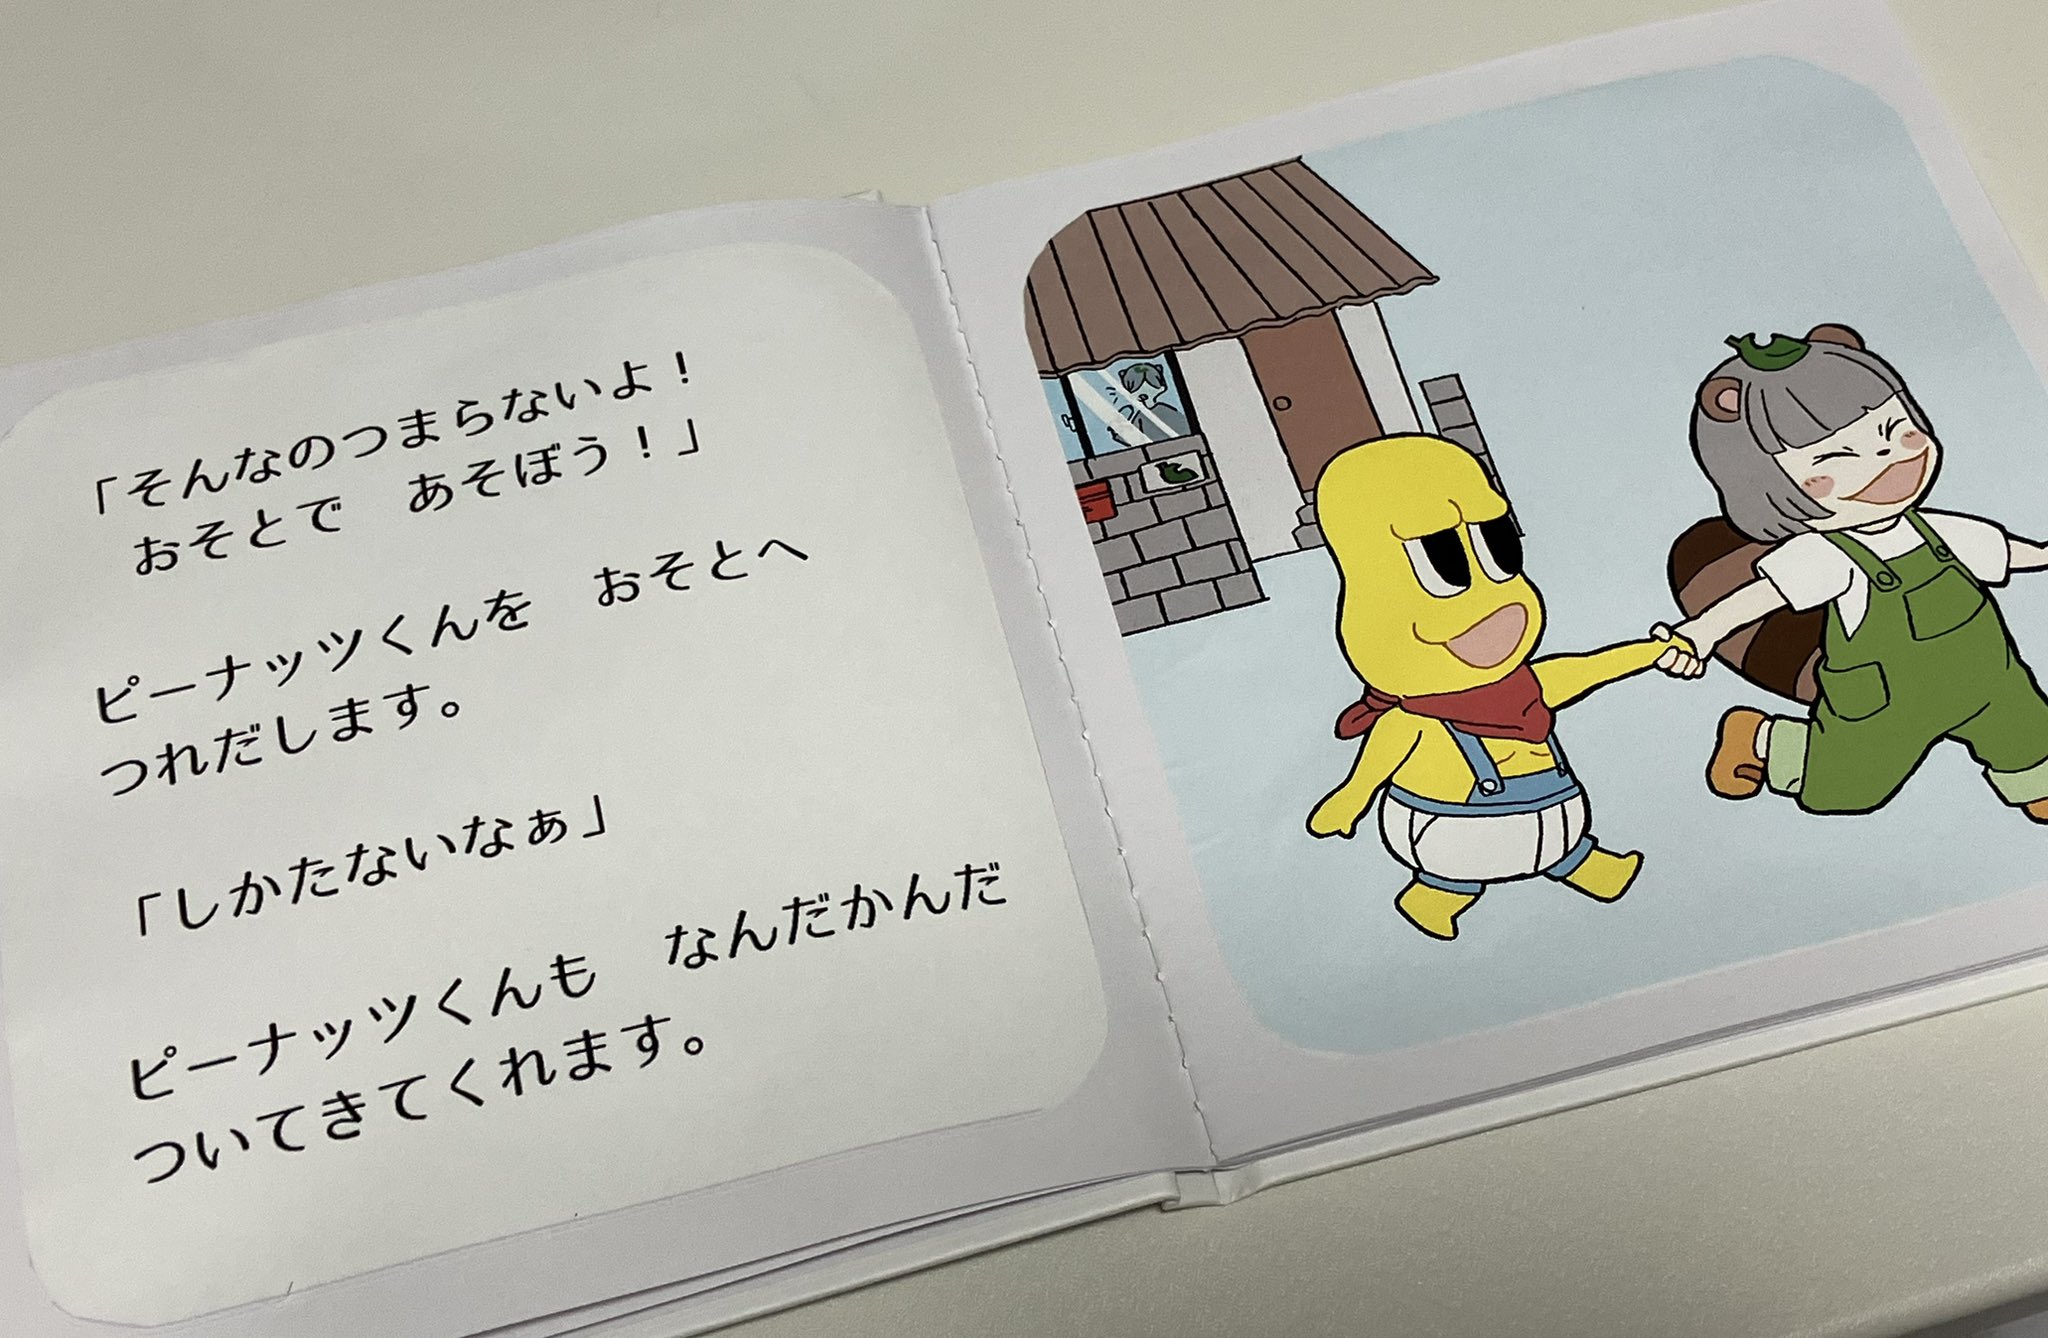 「そんなのつまらないよ!
おそとで　あそぼう!」
ピーナッツくんを　おそとへ
つれだします。
「しかたないなぁ」
ピーナッツくんも　なんだかんだ
ついてきてくれます。